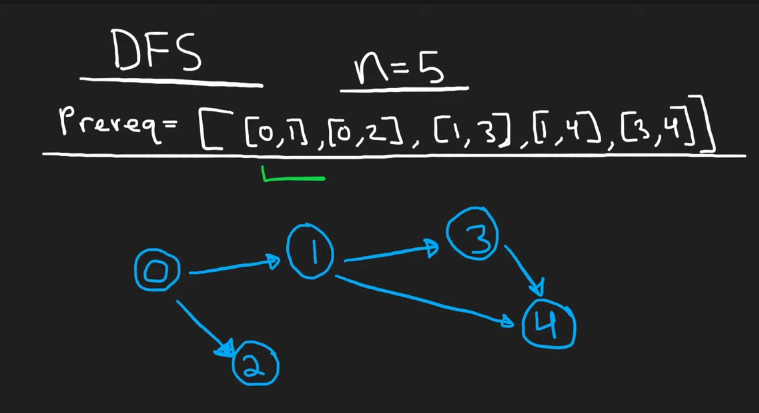 DFS
n=5
Prereq= [ [0,1],[0,2], [1,3],[1,4],[3,4]]
0
1
3
4
2